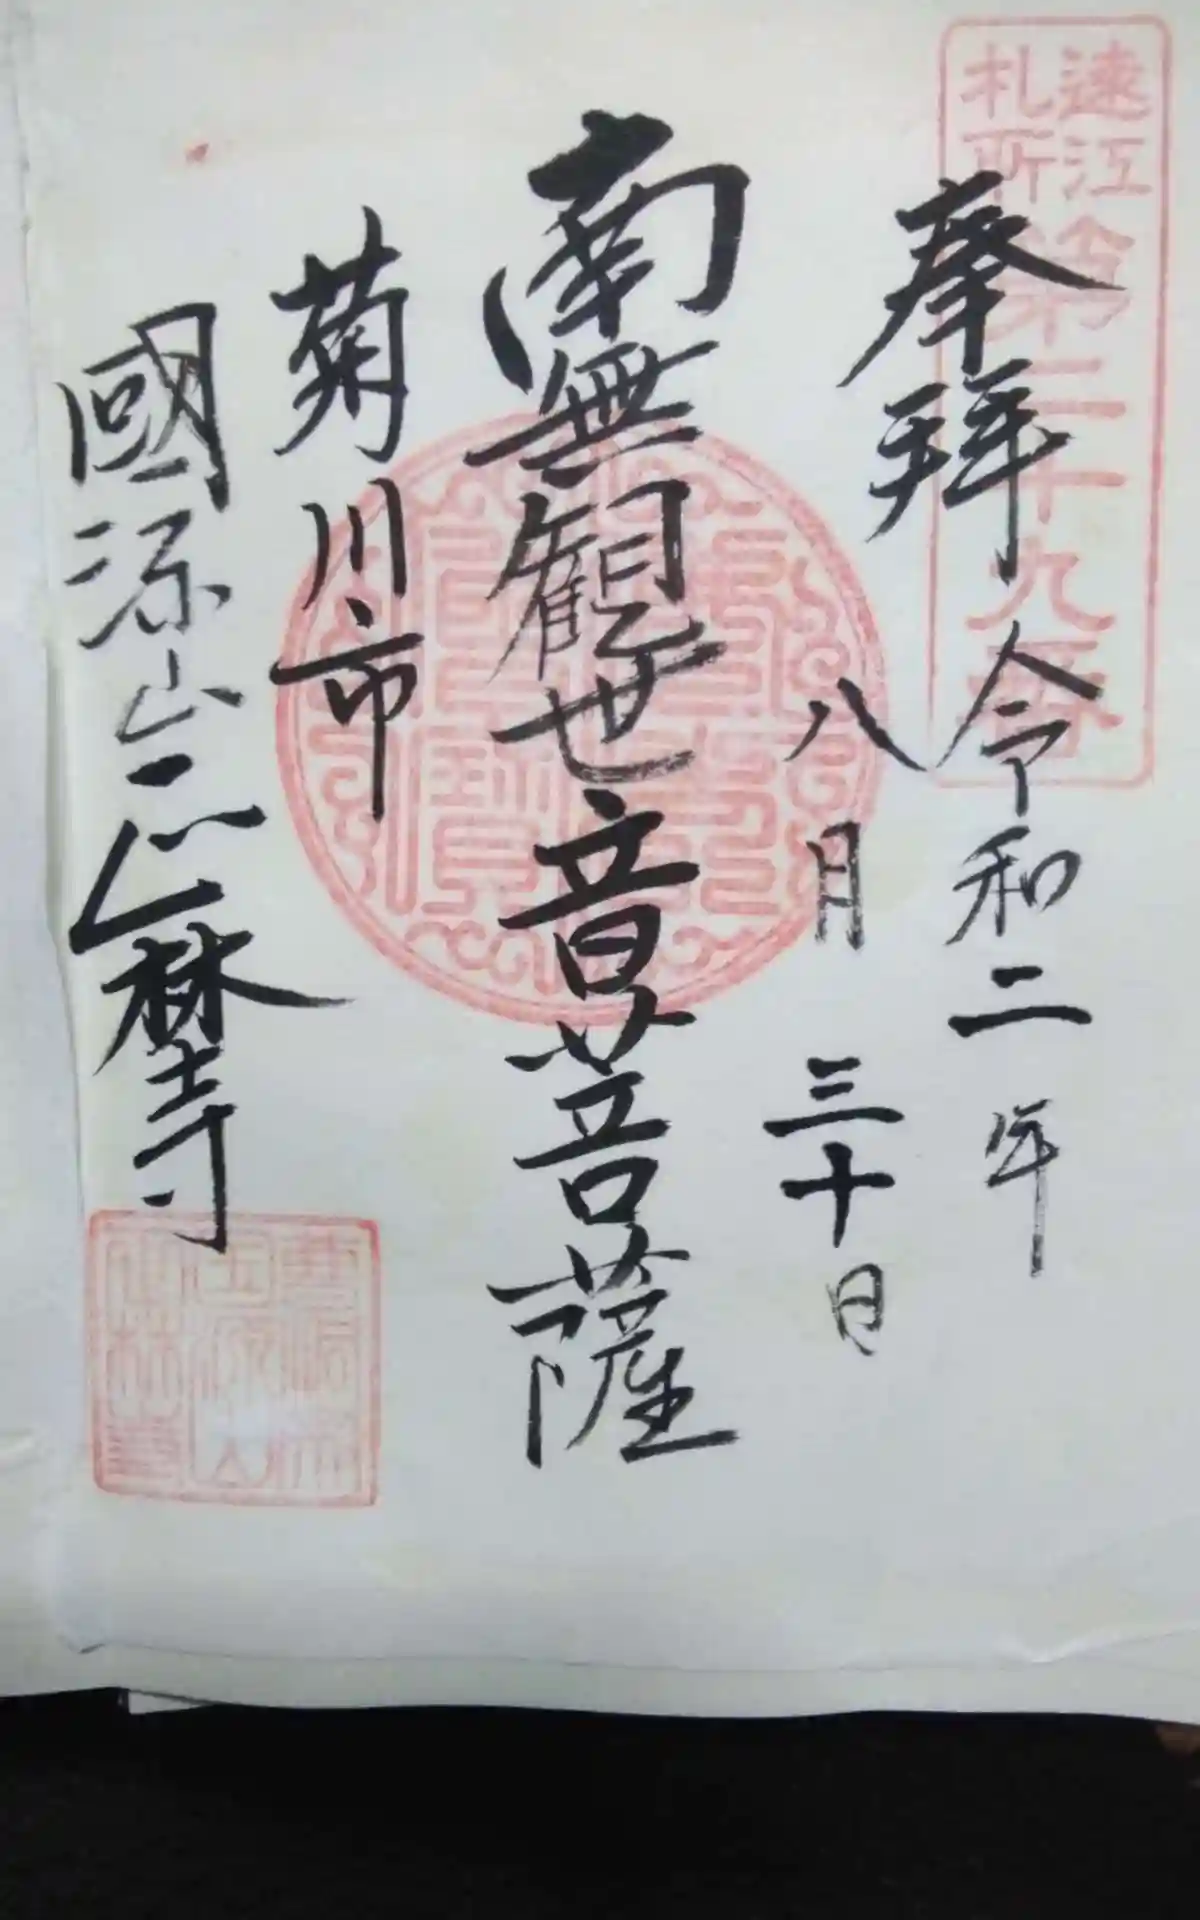 遠江
札所
第二十九番
奉拝 令和二年
八月三十日
南無觀世音菩薩
菊川市
國源山正林寺